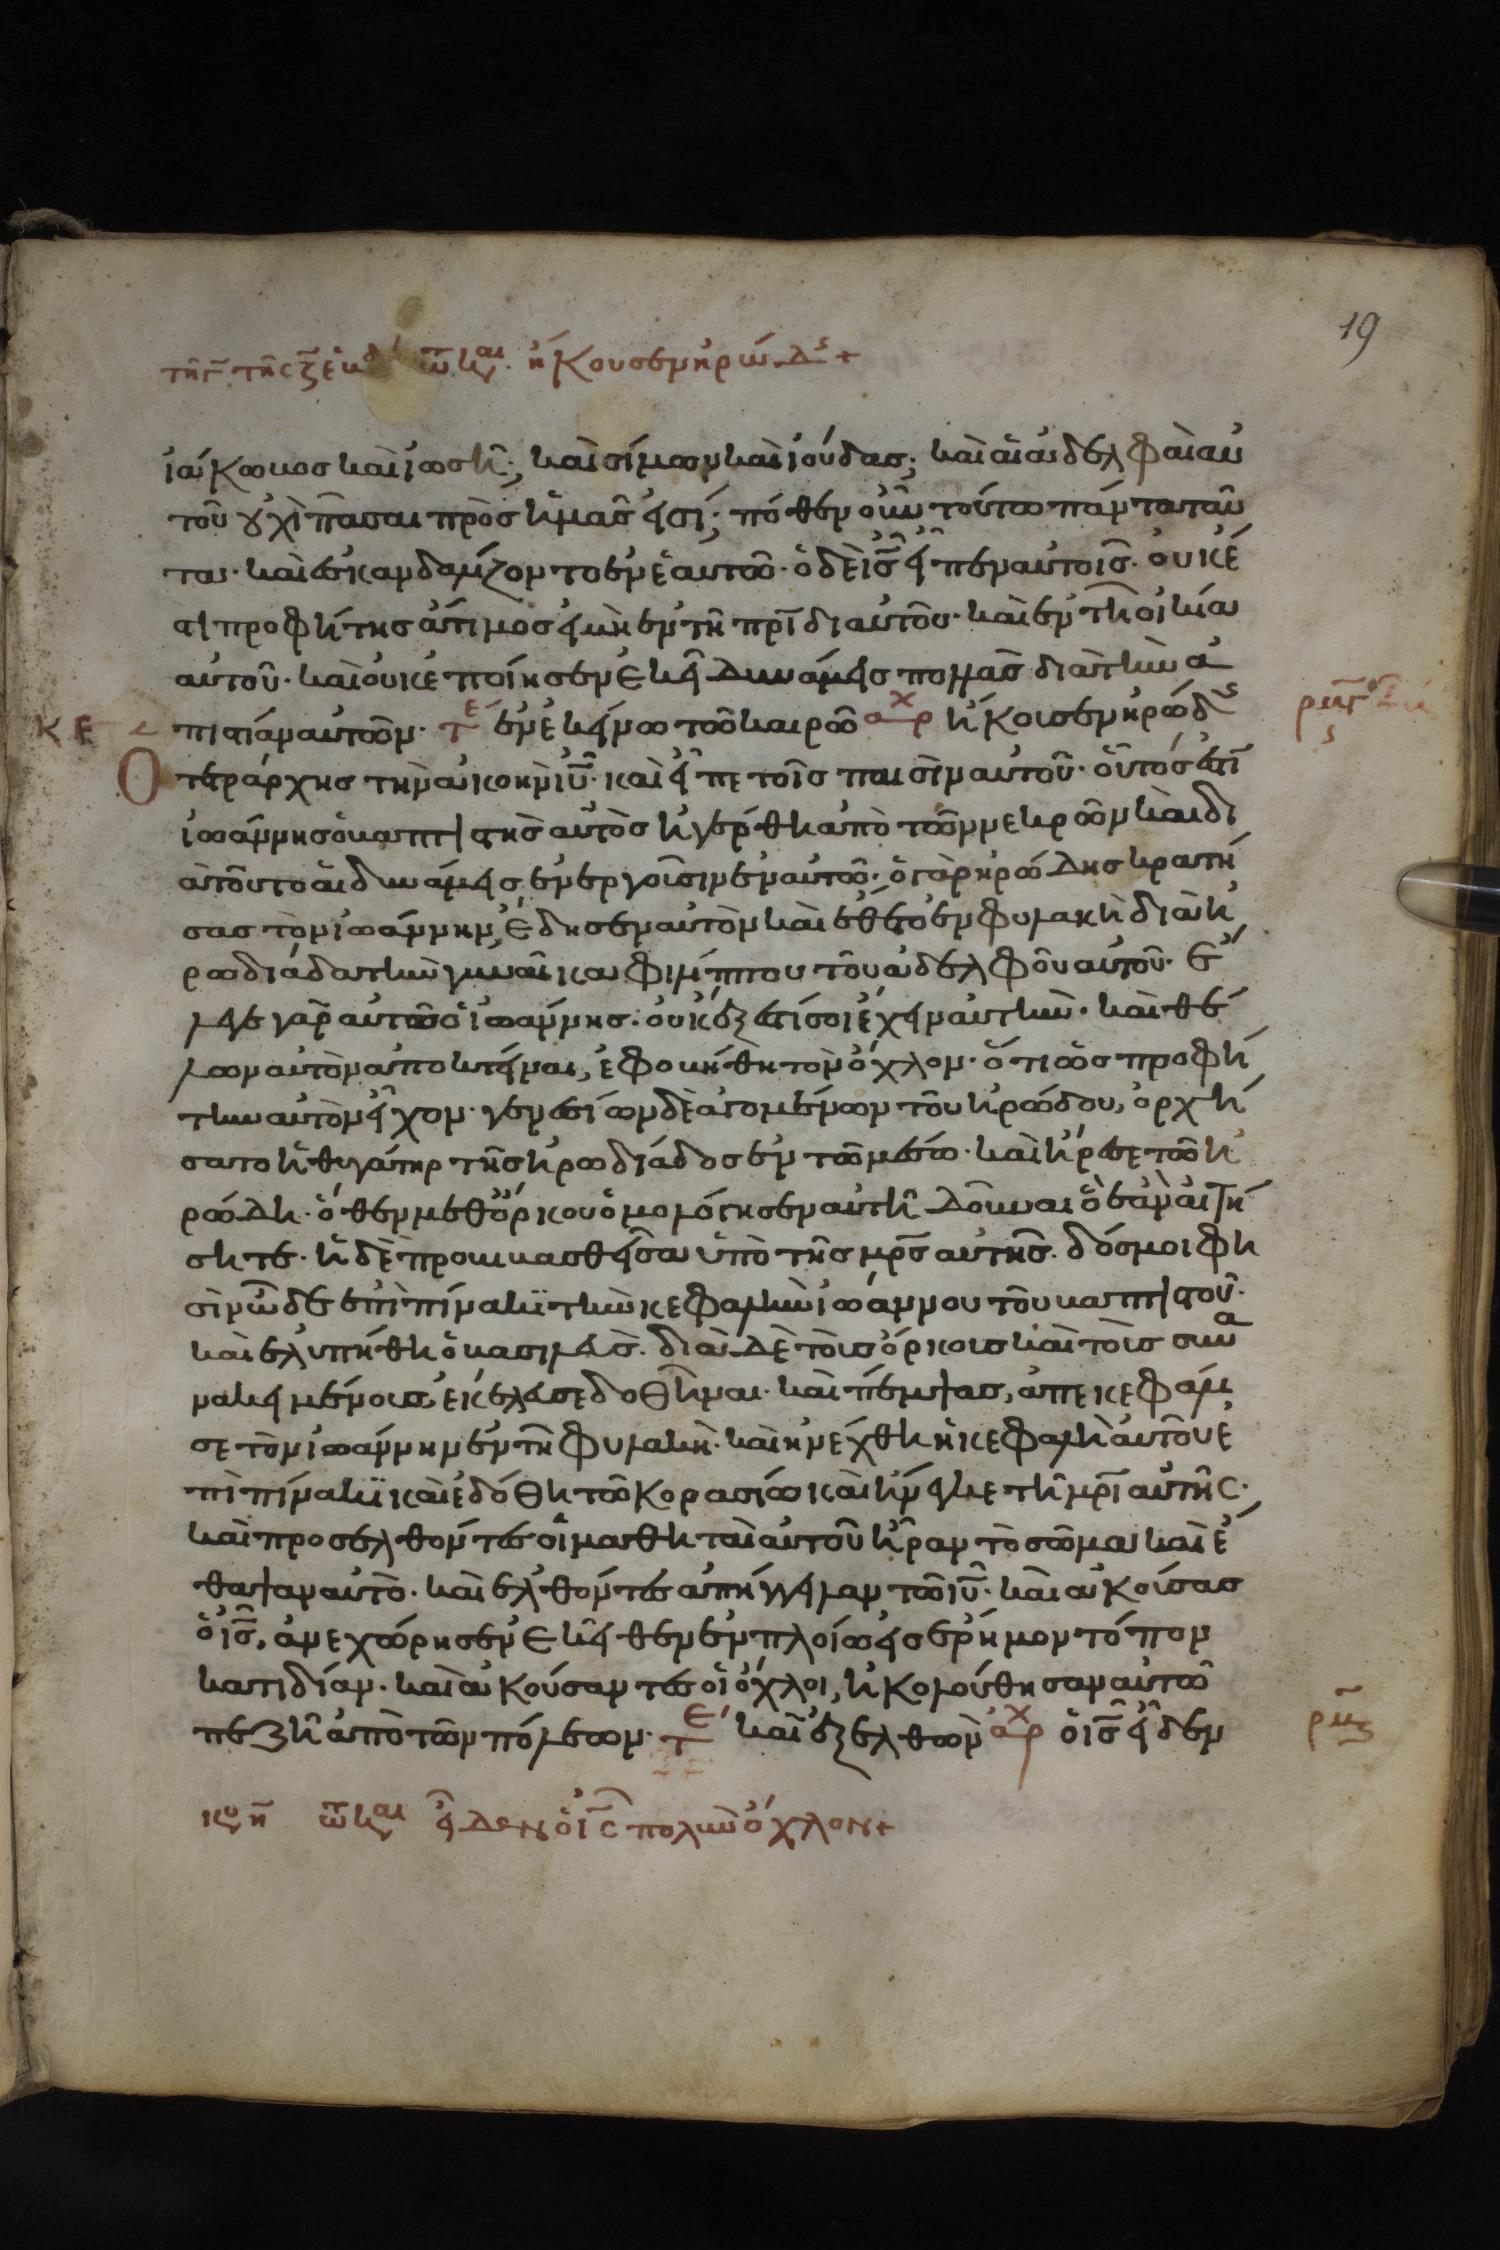 19
τῆ γ̅ τῆς ζ̅ ἑβδ τῶ και ἤκουσεν ἡρώδς +
ἰάκωβος καὶ ἰωσῆ; καὶ σίμων καὶ ἰούδας; καὶ αἱ ἀδελφαὶ αυ
τοῦ οὐχὶ πᾶσαι πρὸς ἡμᾶς εἰσί; πόθεν οὖν τούτω πάντα ταῦ
τα· καὶ ἐσκανδαλίζοντο ἐν ἑαυτῶ· ὁ δὲ ι̅ς̅ εἶπεν αὐτοῖς· οὐκ ἔ
στι προφήτης ἄτιμος εἰ μὴ ἐν τῆ πρ̅ίδι αὐτοῦ· καὶ ἐν τῆ οἰκία
αὐτοῦ· καὶ οὐκ ἐποίησεν ἐκεῖ δυνάμεις πολλὰς διὰ τὴν ἀ
κε πιστίαν αὐτῶν· τε ἐν ἐκείνω τῶ καιρῶ αρχ ἤκουσεν ἡρώδς ρμγ
Ο τετράρχης τὴν ἀκοὴν ι̅υ̅· καὶ εἶπε τοῖς παισὶν αὐτοῦ· οὗτός ἐστι
ἰωάννης ὁ βαπτιστὴς αὐτὸς ἠγέρθη ἀπὸ τῶν νεκρῶν καὶ δι
ὰ τοῦτο αἱ δυνάμεις ἐνεργοῦσιν ἐν αὐτῶ· ὁ γὰρ ἡρώδης κρατή
σας τὸν ἰωάννην, ἔδησεν αὐτὸν καὶ ἔθετο ἐν φυλακῆ διὰ ἡ
ρωδιάδα τὴν γυναῖκα φιλίππου τοῦ ἀδελφοῦ αὐτοῦ· ἔ
λεγε γὰρ αὐτῶ ὁ ἰωάννης· οὐκ ἔξεστί σοι ἔχειν αὐτήν· καὶ θέ
λων αὐτὸν ἀποκτεῖναι, ἐφοβήθη τὸν ὄχλον· ὅτι ὡς προφή
την αὐτὸν εἶχον· γενεσίων δὲ ἀγομένων τοῦ ἡρώδου, ὀρχή
σατο ἡ θυγάτηρ τῆς ἡρωδιάδος ἐν τῶ μέσω· καὶ ἤρεσε τῶ ἡ
ρώδη· ὅθεν μεθ' ὅρκου ὁμολόγησεν αὐτῆ δοῦναι ὃ ἐὰν αἰτή
σητε· ἡ δὲ προβιβασθεῖσα ὑπὸ τῆς μρ̅ς αὐτῆς· δός μοι φη
σὶν ὧδε ἐπὶ πίνακϊ τὴν κεφαλὴν ἰωάννου τοῦ βαπτιστοῦ·
καὶ ἐλυπήθη ὁ βασιλεὺς· διὰ δὲ τοὺς ὅρκους καὶ τοὺς συνα
νακειμένους, ἐκέλευσε δοθῆναι· καὶ πέμψας, ἀπεκεφάλι
σε τὸν ἰωάννην ἐν τῆ φυλακῆ· καὶ ἠνέχθη ἡ κεφαλὴ αὐτοῦ ἐ
πὶ πίνακϊ καὶ ἐδόθη τῶ κορασίω καὶ ἤνεγκε τῆ μρ̅ὶ αὐτῆς·
καὶ προσελθόντες οἱ μαθηταὶ αὐτοῦ ἦραν τὸ σῶμα καὶ ἔ
θαψαν αὐτό· καὶ ἐλθόντες ἀπήγγειλαν τῶ ι̅υ̅· καὶ ἀκούσας
ὁ ι̅ς̅, ἀνεχώρησεν ἐκεῖθεν ἐν πλοίω εἰς ἔρημον τόπον
κατιδίαν· καὶ ἀκούσαντες οἱ ὄχλοι, ἠκολούθησαν αὐτῶ
πεζῆ ἀπὸ τῶν πόλεων· τε καὶ ἐξελθὼν αρχ ὁ ι̅ς̅ εἶδεν ρμζ
κυ η̅ τῶ και εἶδεν ὁ ι̅ς̅ πολὺν ὄχλον +